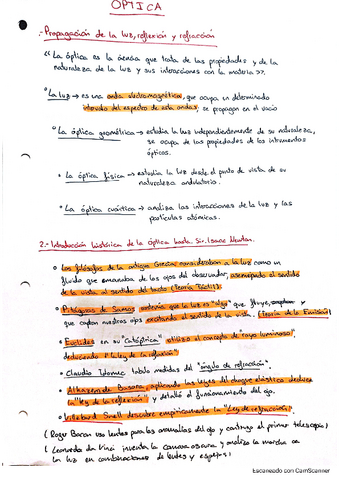 OPTICA
1.- Propagación de la luz, reflexión y refracción
" La óptica es la ciencia que trata de las propiedades y de la
naturaleza de la luz y sus interacciones con la materia ".
La luz → es una onda electromagnética, que ocupa un determinado
intervalo del espectro de estas ondas, se propagan en el vacío
La óptica geométrica → estudia la luz independientemente de su naturaleza,
se ocupa de las propiedades de los intrumentos
ópticos.
La óptica física → estudia la luz desde el punto de vista de su
naturaleza ondulatoria.
La óptica cuántica → analiza las interacciones de la luz y las
partículas atómicas.
2.- Introducción histórica de la óptica hasta Sir. Isaac Newton.
Los filósofos de la antigua Grecia consideraban a la luz como un
fluido que emanaba de los ojos del observador, asemejando el sentido
de la vista al sentido del tacto (Teoría Táctil).
Pitágoras de Samos sostenía que la luz es "algo" que fluye, y
que captan nuestros ojos excitando el sentido de la vista. (Teoría de la Emisión)
Euclides en su "Catóptrica" utilizó el concepto de "rayo luminoso",
deduciendo "la ley de la reflexión"
Claudio Ptolomeo tabuló medidas del "ángulo de refracción".
Alhazen de Basora, aplicando las leyes del choque elástico deduce
la "ley de la reflexión" y detalló el funcionamiento del ojo.
Willebrord Snell descubre empíricamente la "Ley de refracción".
(Roger Bacon usa lentes para las anomalías del ojo y contruye el primer telescopio)
(Leonardo da Vinci inventa la cámara oscura y analiza la marcha de
la luz en combinaciones de lentes y espejos)
Escaneado con CamScanner